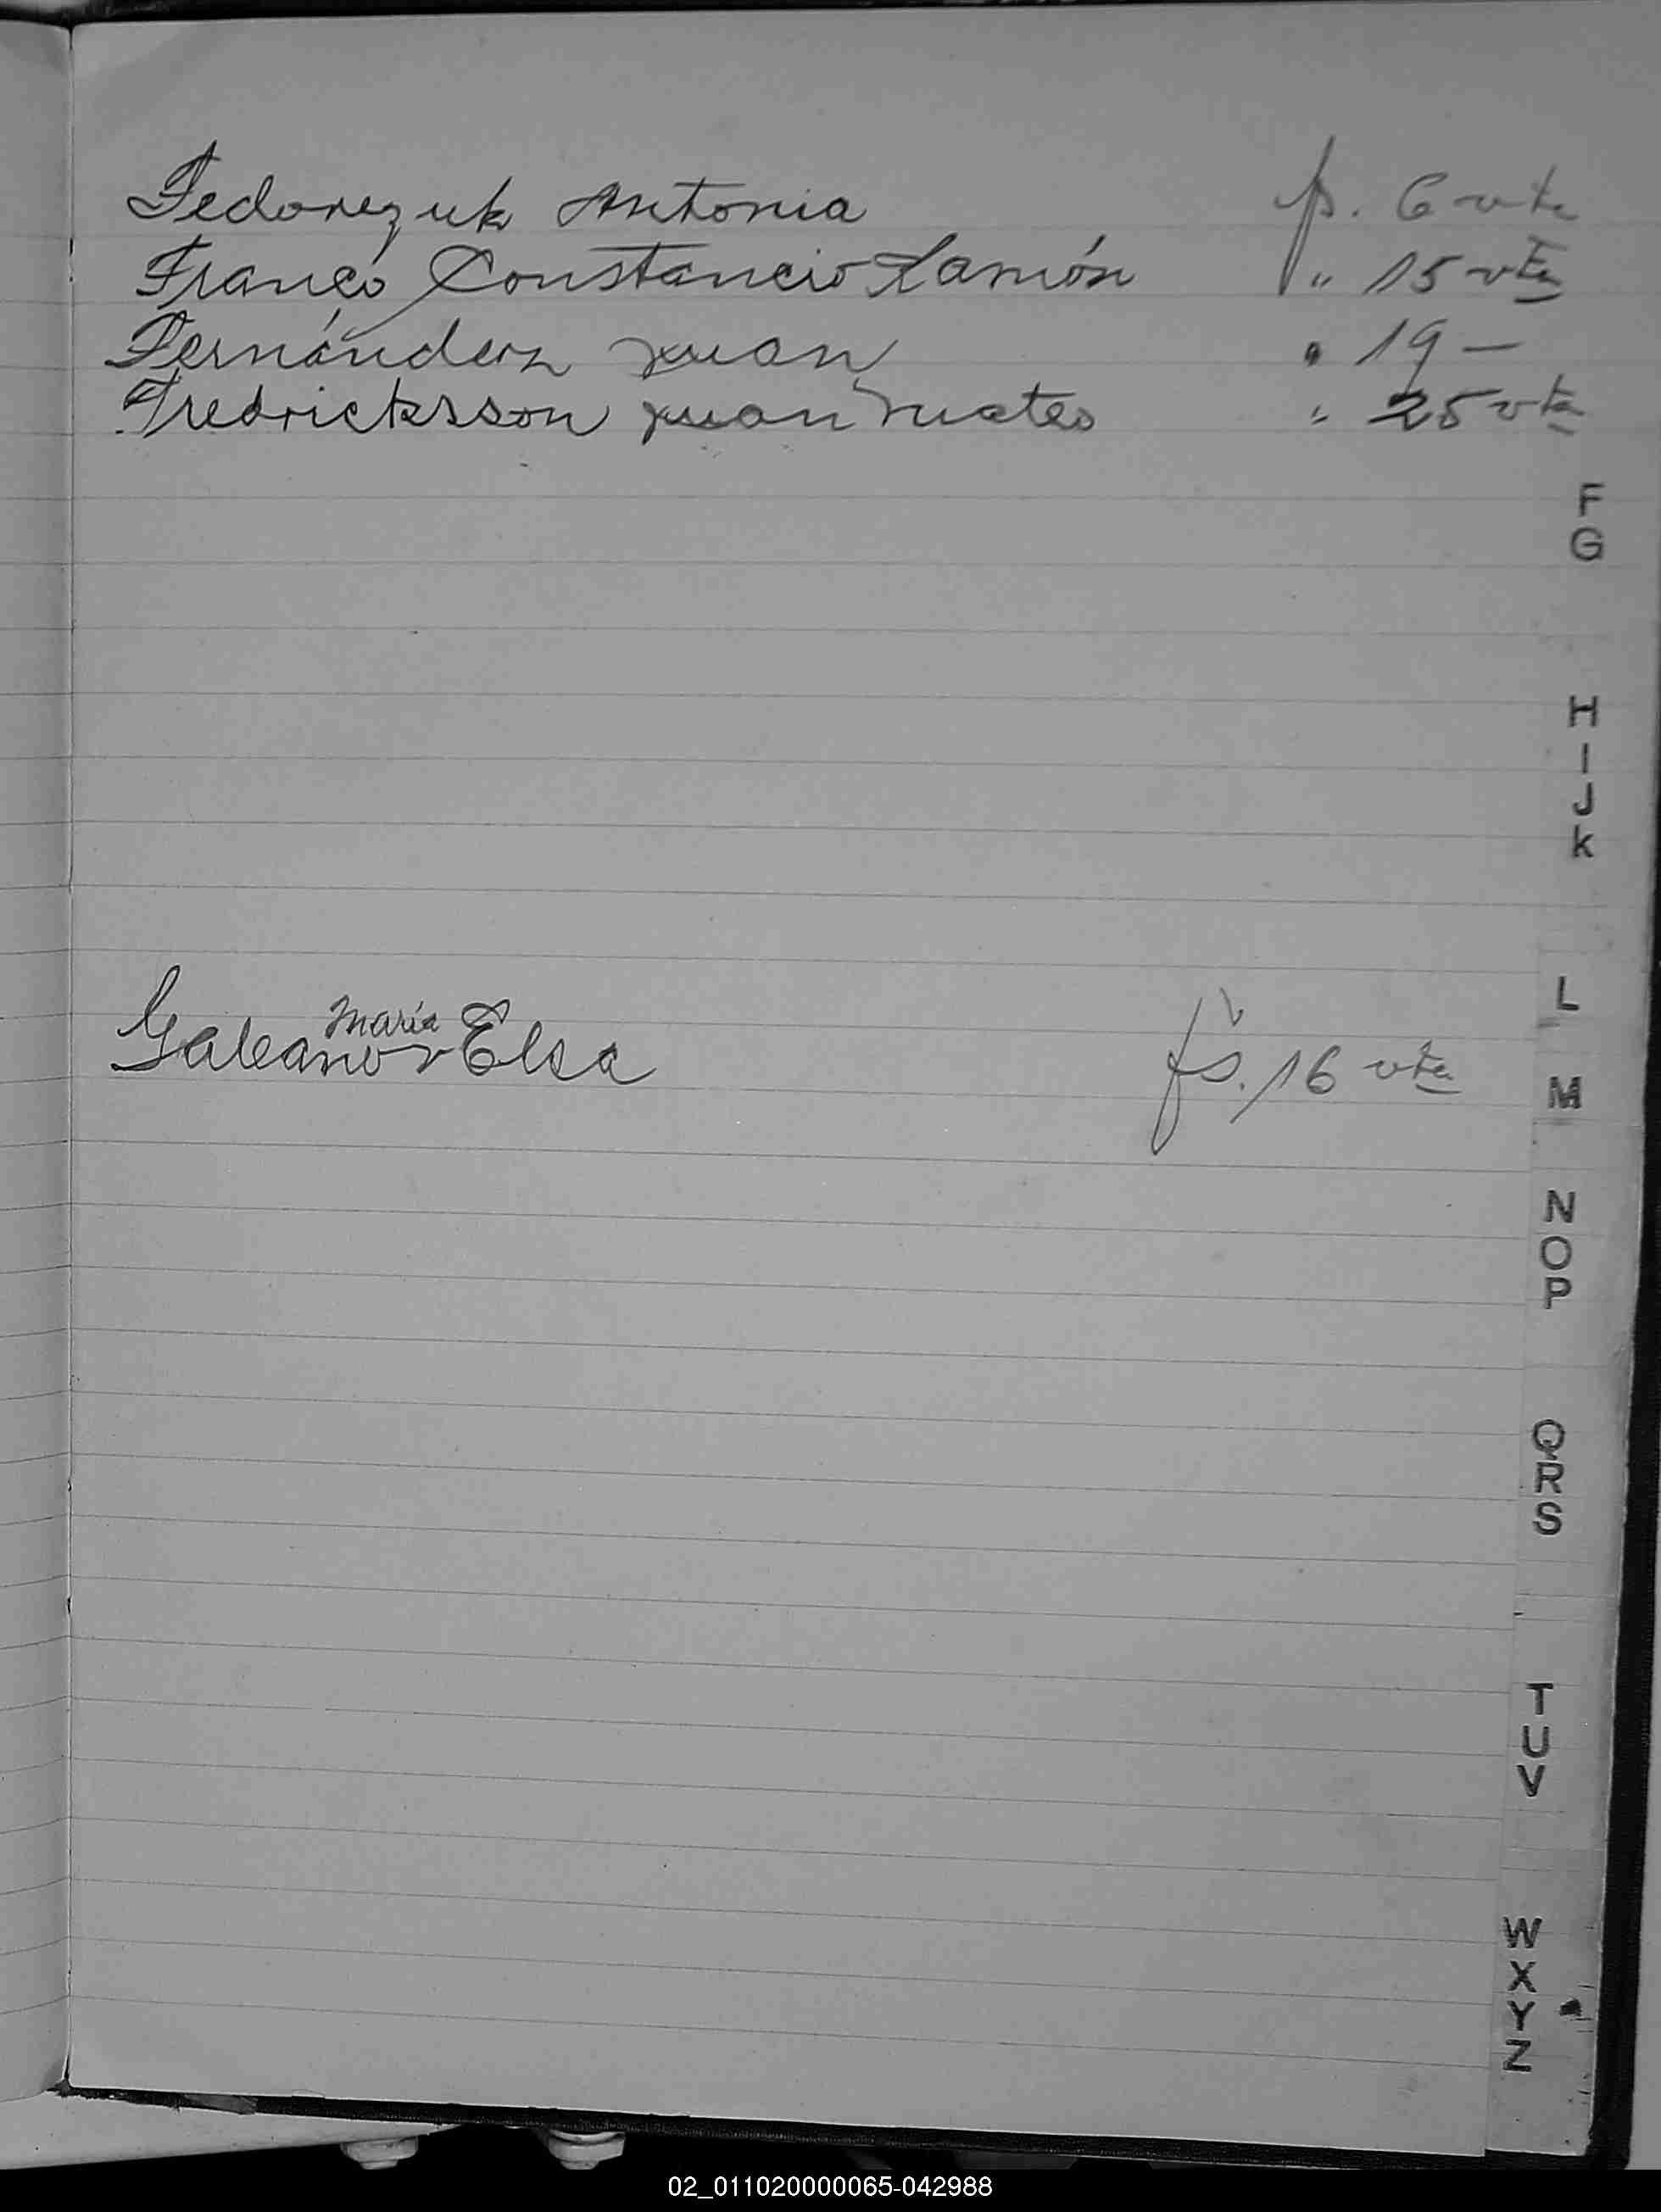 Fedorczuk Antonia fs. 6 vta
Franco Constancio Ramón " 15 vta
Fernández Juan " 19 —
Fredricksson Juan Mateo " 25 vta
F
G
H
I
J
K
María
Galeano Elsa fs. 16 vta
L
M
N
O
P
Q
R
S
T
U
V
W
X
Y
Z
02_011020000065-042988